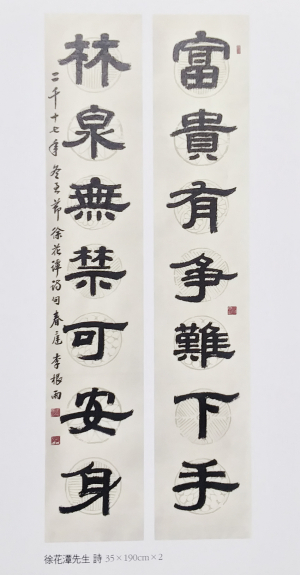 富貴有爭難下手
林泉無禁可安身
二千十七年冬至節 徐花潭詩句 春庭 李根雨
徐花潭先生 詩 35×190cm×2